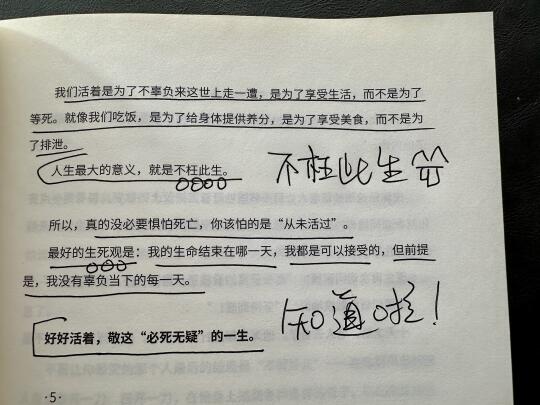 我们活着是为了不辜负来这世上走一遭，是为了享受生活，而不是为了
等死。就像我们吃饭，是为了给身体提供养分，是为了享受美食，而不是为
了排泄。
人生最大的意义，就是不枉此生。
不枉此生
所以，真的没必要惧怕死亡，你该怕的是“从未活过”。
最好的生死观是：我的生命结束在哪一天，我都是可以接受的，但前提
是，我没有辜负当下的每一天。
知道啦！
好好活着，敬这“必死无疑”的一生。
·5·